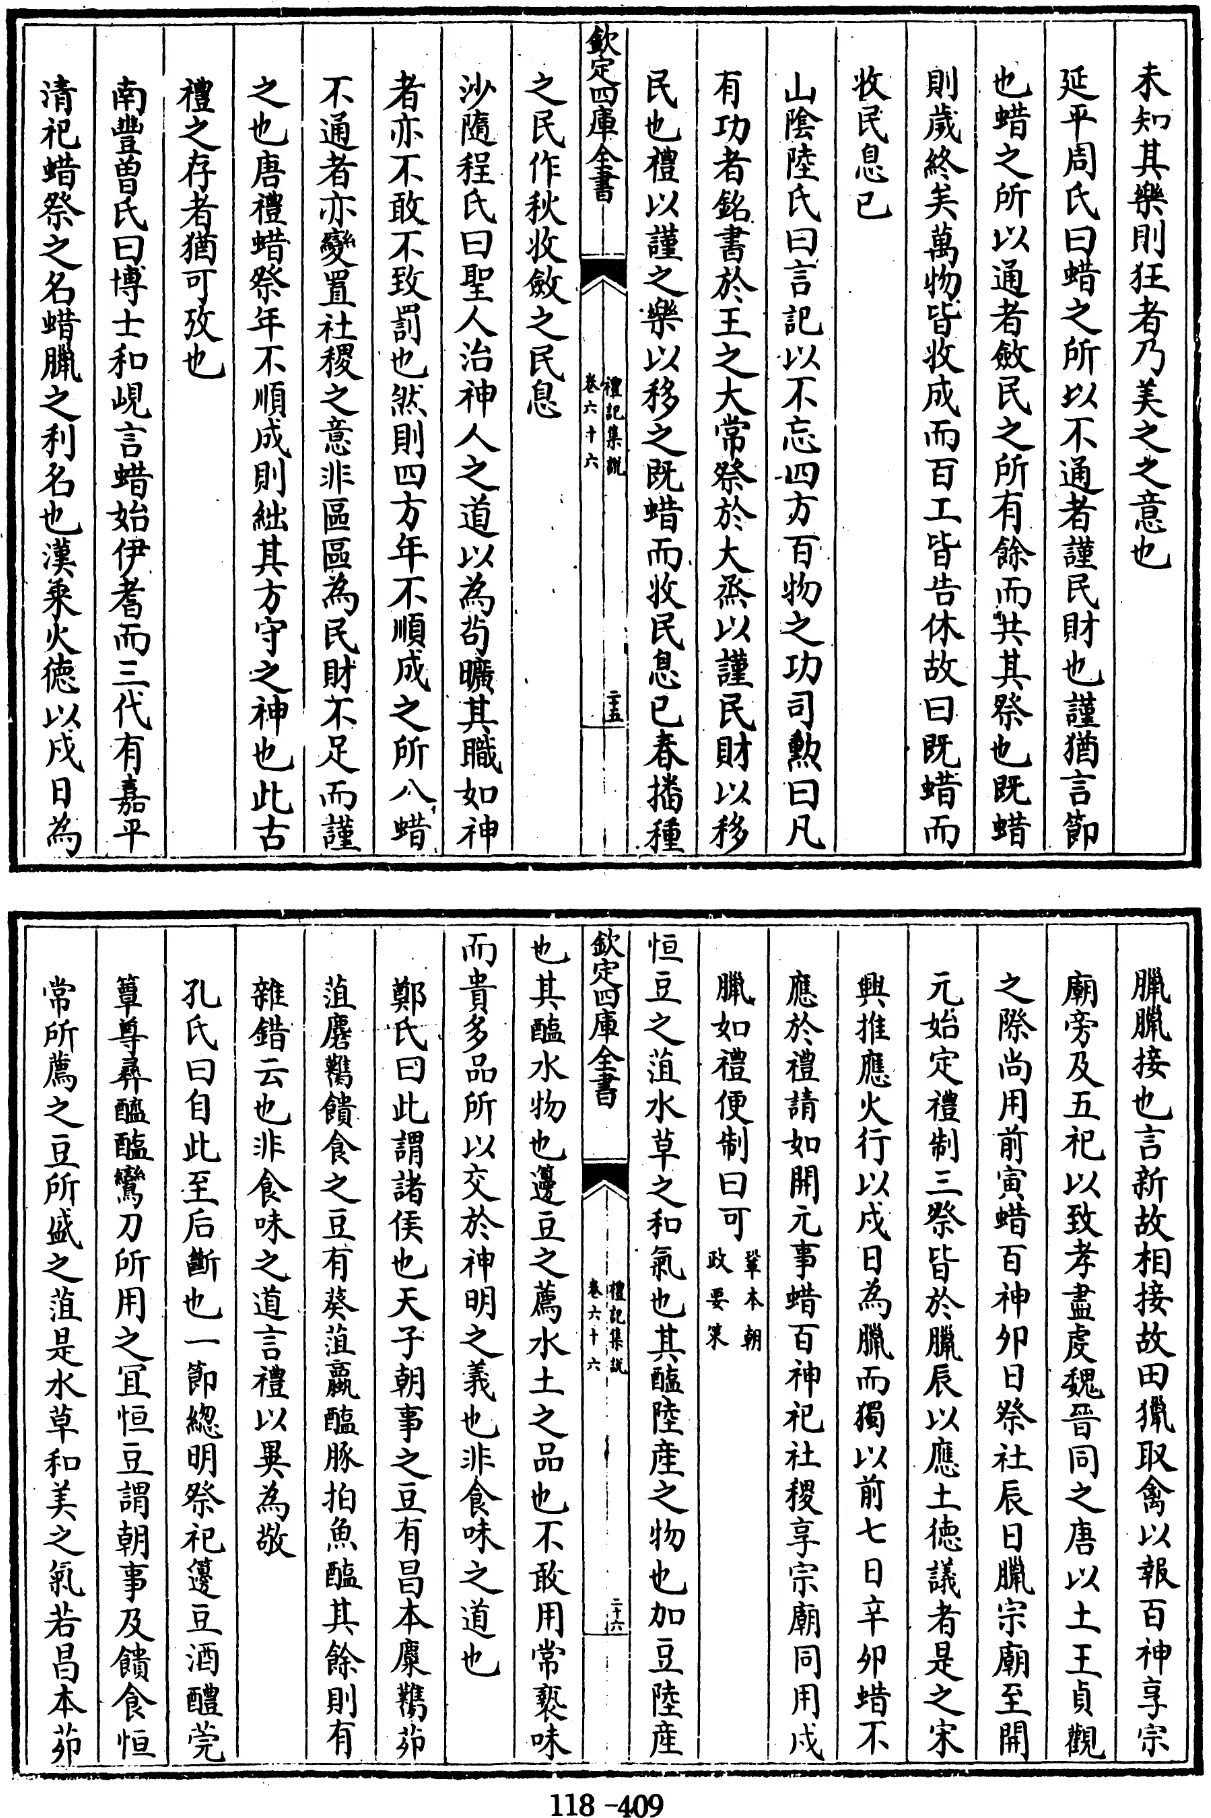 未知其樂則狂者乃美之之意也
延平周氏曰蜡之所以不通者謹民財也謹猶言節
也蜡之所以通者斂民之所有餘而共其祭也既蜡
則歲終矣萬物皆收成而百工皆告休故曰既蜡而
收民息已
山陰陸氏曰言記以不忘四方百物之功司勲曰凡
有功者銘書於王之大常祭於大烝以謹民財以移
民也禮以謹之樂以移之既蜡而收民息已春播種
欽定四庫全書
禮記集說
卷六十六
二十五
之民作秋收斂之民息
沙隨程氏曰聖人治神人之道以為茍曠其職如神
者亦不敢不致罰也然則四方年不順成之所八蜡
不通者亦變置社稷之意非區區為民財不足而謹
之也唐禮蜡祭年不順成則絀其方守之神也此古
禮之存者猶可攷也
南豐曾氏曰博士和峴言蜡始伊耆而三代有嘉平
清祀蜡祭之名蜡臘之利名也漢乘火徳以戍日為
臘臘接也言新故相接故田獵取禽以報百神享宗
廟旁及五祀以致孝盡䖍魏晉同之唐以土王貞觀
之際尚用前寅蜡百神夘日祭社辰日臘宗廟至開
元始定禮制三祭皆於臘辰以應土徳議者是之宋
興推應火行以戍日為臘而獨以前七日辛夘蜡不
應於禮請如開元事蜡百神祀社稷享宗廟同用戍
臘如禮便制曰可
鞏本朝
政要䇿
恒豆之菹水草之和氣也其醢陸產之物也加豆陸產
欽定四庫全書
禮記集說
卷六十六
二十六
也其醢水物也籩豆之薦水土之品也不敢用常䙝味
而貴多品所以交於神明之義也非食味之道也
鄭氏曰此謂諸侯也天子朝事之豆有昌本麋臡茆
菹麏臡饋食之豆有葵菹蠃醢豚拍魚醢其餘則有
雜錯云也非食味之道言禮以異為敬
孔氏曰自此至后斷也一節總明祭祀籩豆酒醴莞
簟尊彝醯醢鸞刀所用之冝恒豆謂朝事及饋食恒
常所薦之豆所盛之菹是水草和美之氣若昌本茆
118-409